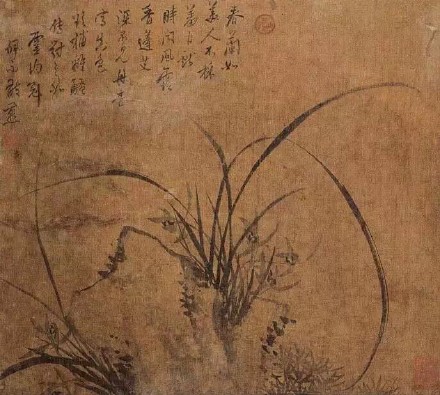 春蘭如
美人不採
羞自獻
時聞風露
香蓬艾
深不見丹青
寫真色
欲補離騷
傳對之如
靈均冠
佩不敢燕